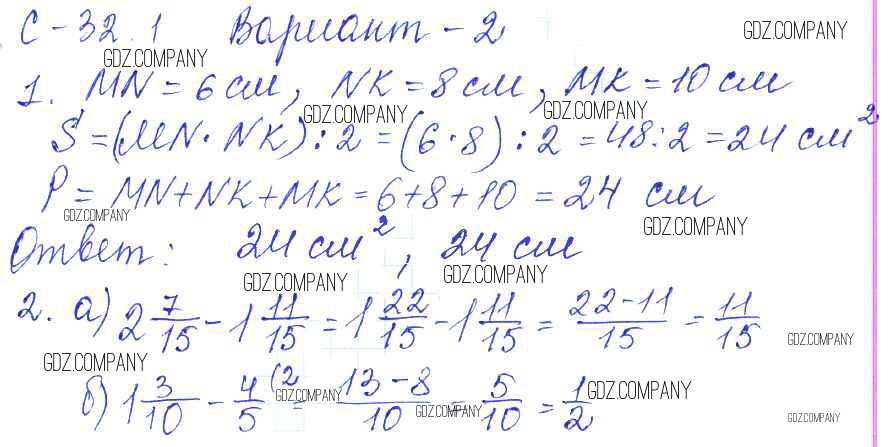 С-32.1 Вариант - 2
GDZ.COMPANY GDZ.COMPANY
1. MN = 6 см, NK = 8 см, MK = 10 см
GDZ.COMPANY GDZ.COMPANY
S = (MN · NK) : 2 = (6 · 8) : 2 = 48 : 2 = 24 см²
P = MN + NK + MK = 6 + 8 + 10 = 24 см
GDZ.COMPANY GDZ.COMPANY
Ответ: 24 см², 24 см
GDZ.COMPANY GDZ.COMPANY
2. а) 2 7/15 - 1 11/15 = 1 22/15 - 1 11/15 = 22-11/15 = 11/15
GDZ.COMPANY GDZ.COMPANY
б) 1 3/10 - 4/5 (2 = 13-8/10 = 5/10 = 1/2
GDZ.COMPANY GDZ.COMPANY GDZ.COMPANY GDZ.COMPANY